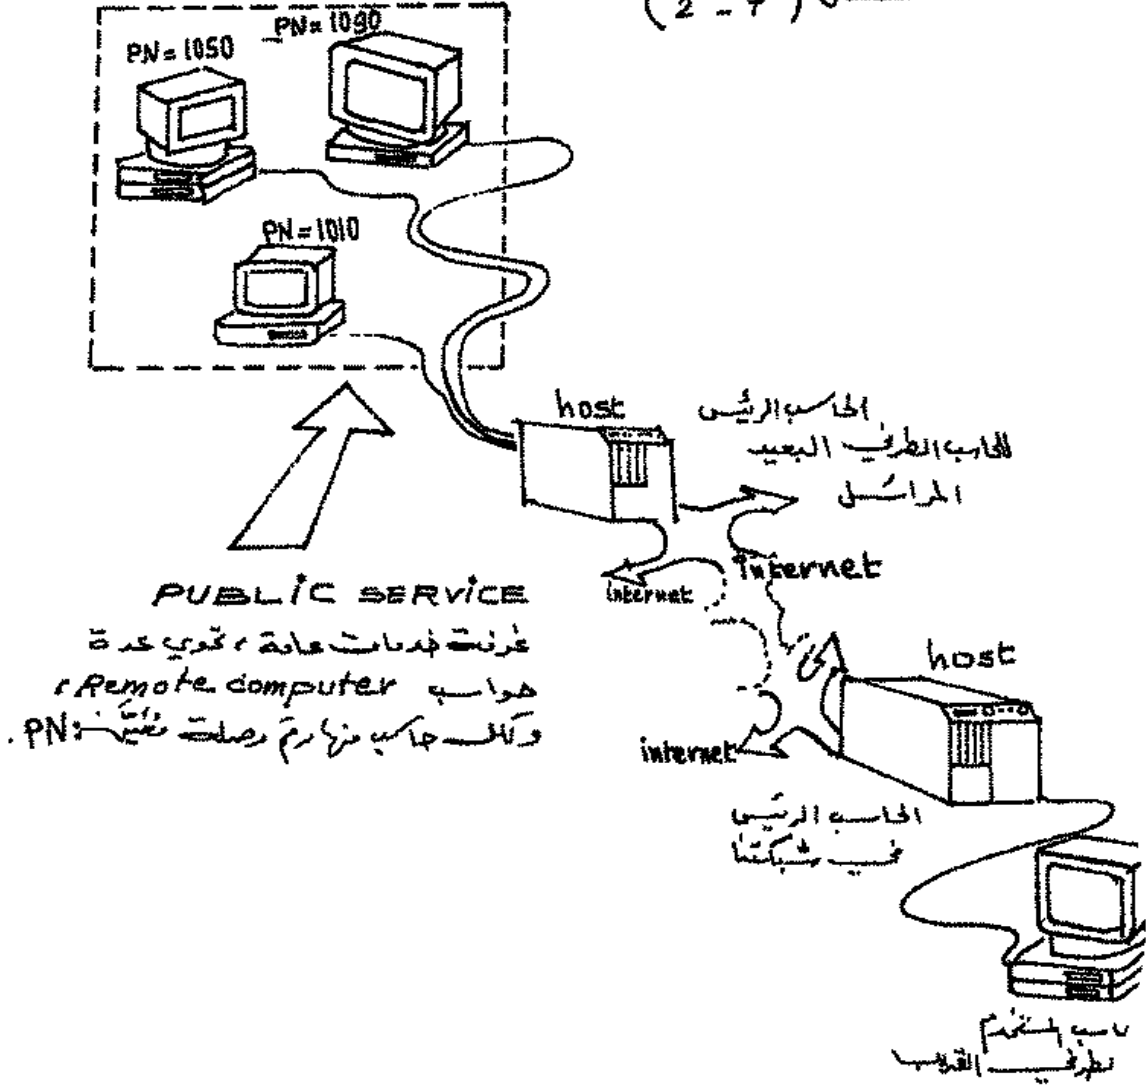 (2 - 7)
PN = 1090
PN = 1050
PN = 1010
host
الحاسب الرئيسي
للحاسب الطرفي البعيد
المراسل
internet
internet
PUBLIC SERVICE
غرفة خدمات عامة، تحوي عدة
حواسب Remote computer،
ولكل حاسب منها رقم وصلة PN.
host
internet
الحاسب الرئيسي
في شبكتنا
اسب المستخدم
لطرفي القريب